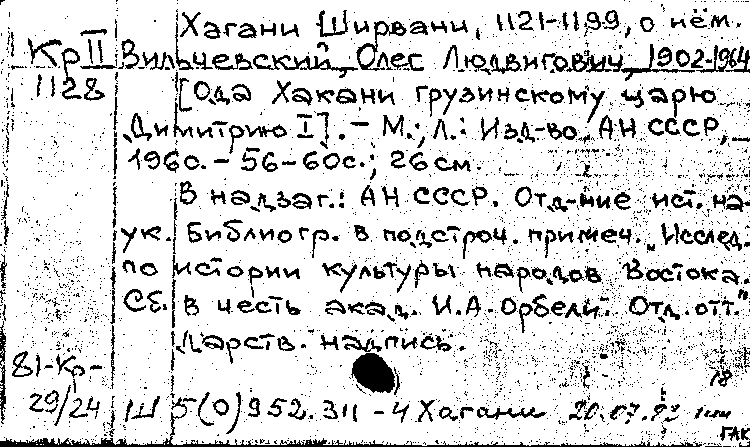 Хагани Ширвани, 1121-1199, о нём.
Кр II Вильчевский, Олег Людвигович, 1902-1964
1128 [Ода Хакани грузинскому царю
Димитрию I]. – М.; Л.: Изд-во АН СССР,
1960. – 56-60с.; 26см.
В надзаг.: АН СССР. Отд-ние ист. на-
ук. Библиогр. в подстроч. примеч. „Исслед.
по истории культуры народов Востока.
Сб. в честь акад. И.А.Орбели. Отд. отт."
Дарств. надпись.
81-Кр-
29/24 Ш 5(0)952.311-4 Хагани 20.07.
18